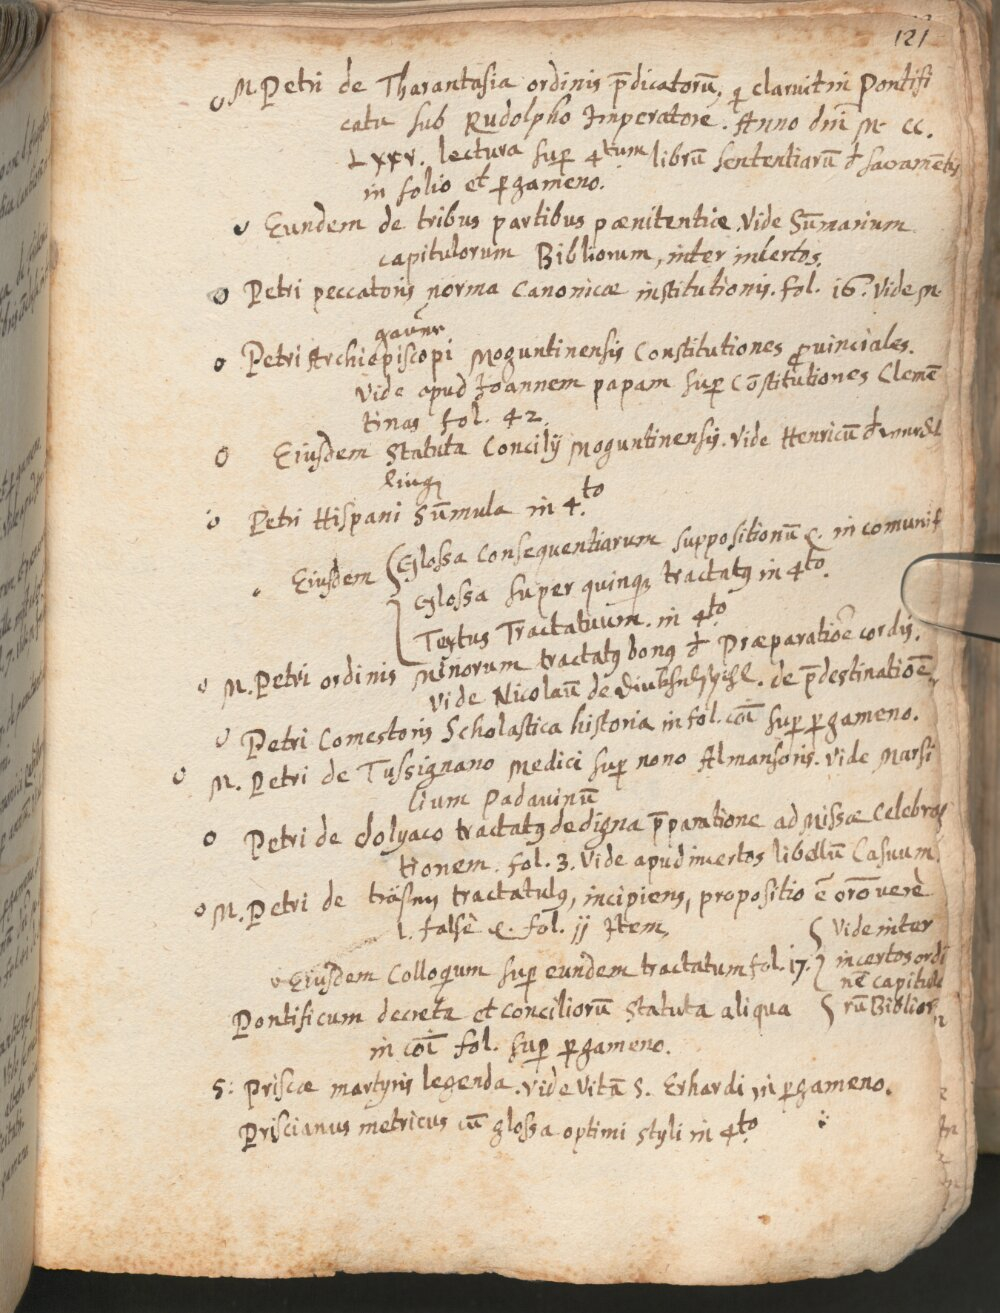 121
M. Petri de Tharantasia ordinis p̄dicatorū, q claruit in Pontifi
catu sub Rudolpho Imperatore. Anno dnī M. CC.
LXXV. lectura sup 4tum librū sententiarū d̄ sacramētis
in folio et pergameno.
Eundem de tribus partibus pænitentiæ. Vide Sūmarium
capitulorum Bibliorum, inter incertos.
Petri peccatoris norma Canonicæ institutionis. fol. 16. Vide M.
Petri Archiepiscopi Moguntinensis Constitutiones provinciales.
Vide apud Joannem papam sup Cōstitutiones Clemē
tinas fol. 42.
Eiusdem Statuta Concilij Moguntinensis. Vide Henricū d̄
Petri Hispani Sūmula in 4to.
Eiusdem Glossa Consequentiarum suppositionū &. in comuni f
Glossa super quinq; tractatq in 4to.
Textus Tractatuum. in 4to.
M. Petri ordinis minorum tractatq bonq d̄ Præparatiōe cordis.
Vide Nicolaū de . de p̄destinatiōe.
Petri Comestoris Scholastica historia in fol. cōi sup pergameno.
M. Petri de Tussignano Medici sup nono Almansoris. Vide Marsi
lium Padavinū
Petri de tractatq de digna p̄paratione ad Missæ Celebra
tionem. fol. 3. Vide apud incertos libellū Casuum
M. Petri de tractatulq, incipiens, propositio ē orō verè
l. falsè &. fol. jj Item,
Vide inter
Eiusdem Colloquum sup eundem tractatum fol. 17.
incertos ordi
nē capitulo
Pontificum decreta et conciliorū statuta aliqua
rū Biblior
in cōi fol. sup pergameno.
S: Priscæ martyris legenda. Vide Vitā S. Erhardi in pergameno.
Priscianus metricus cū glossa optimi styli in 4to